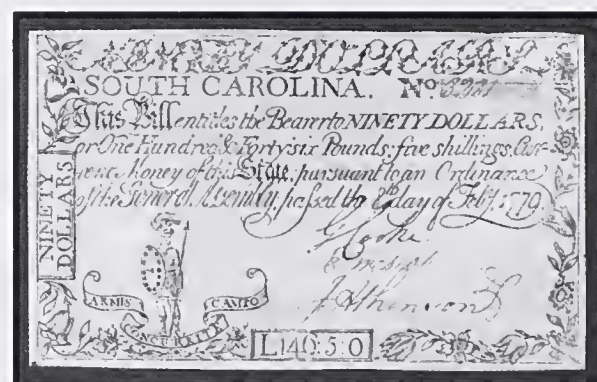 NINETY DOLLARS
SOUTH CAROLINA. No.
This Bill entitles the Bearer to NINETY DOLLARS,
or One Hundred & Fortysix Pounds, five shillings, Cur-
rent Money of this State, pursuant to an Ordinance
of the General Assembly, passed the 8th day of Feby. 1779.
NINETY
DOLLARS
ARMIS CAMPO
L146:5:0